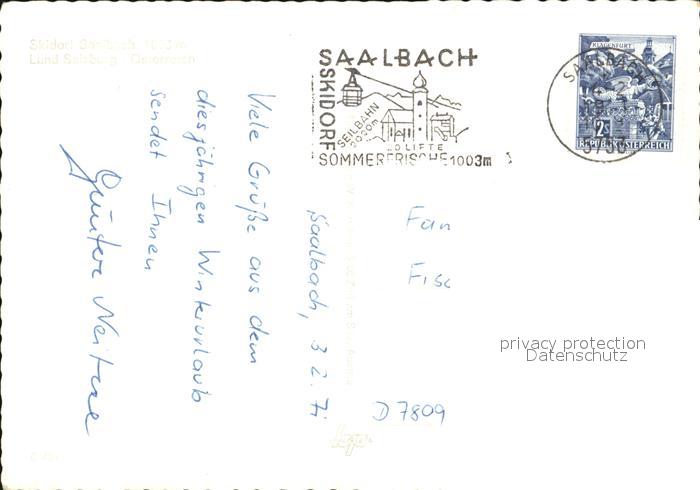 Skidorf Saalbach, 1003m
Land Salzburg Österreich
SAALBACH
SKIDORF
SEILBAHN
2020m
20 LIFTE
SOMMERFRISCHE 1003m
KLAGENFURT
2S
REPUBLIK ÖSTERREICH
SAALBACH
5753
Saalbach, 3 2. 71
Viele Grüße aus dem
diesjährigen Winterurlaub
sendet Ihnen
Günter
Fan
Fisc
D 7809
privacy protection
Datenschutz